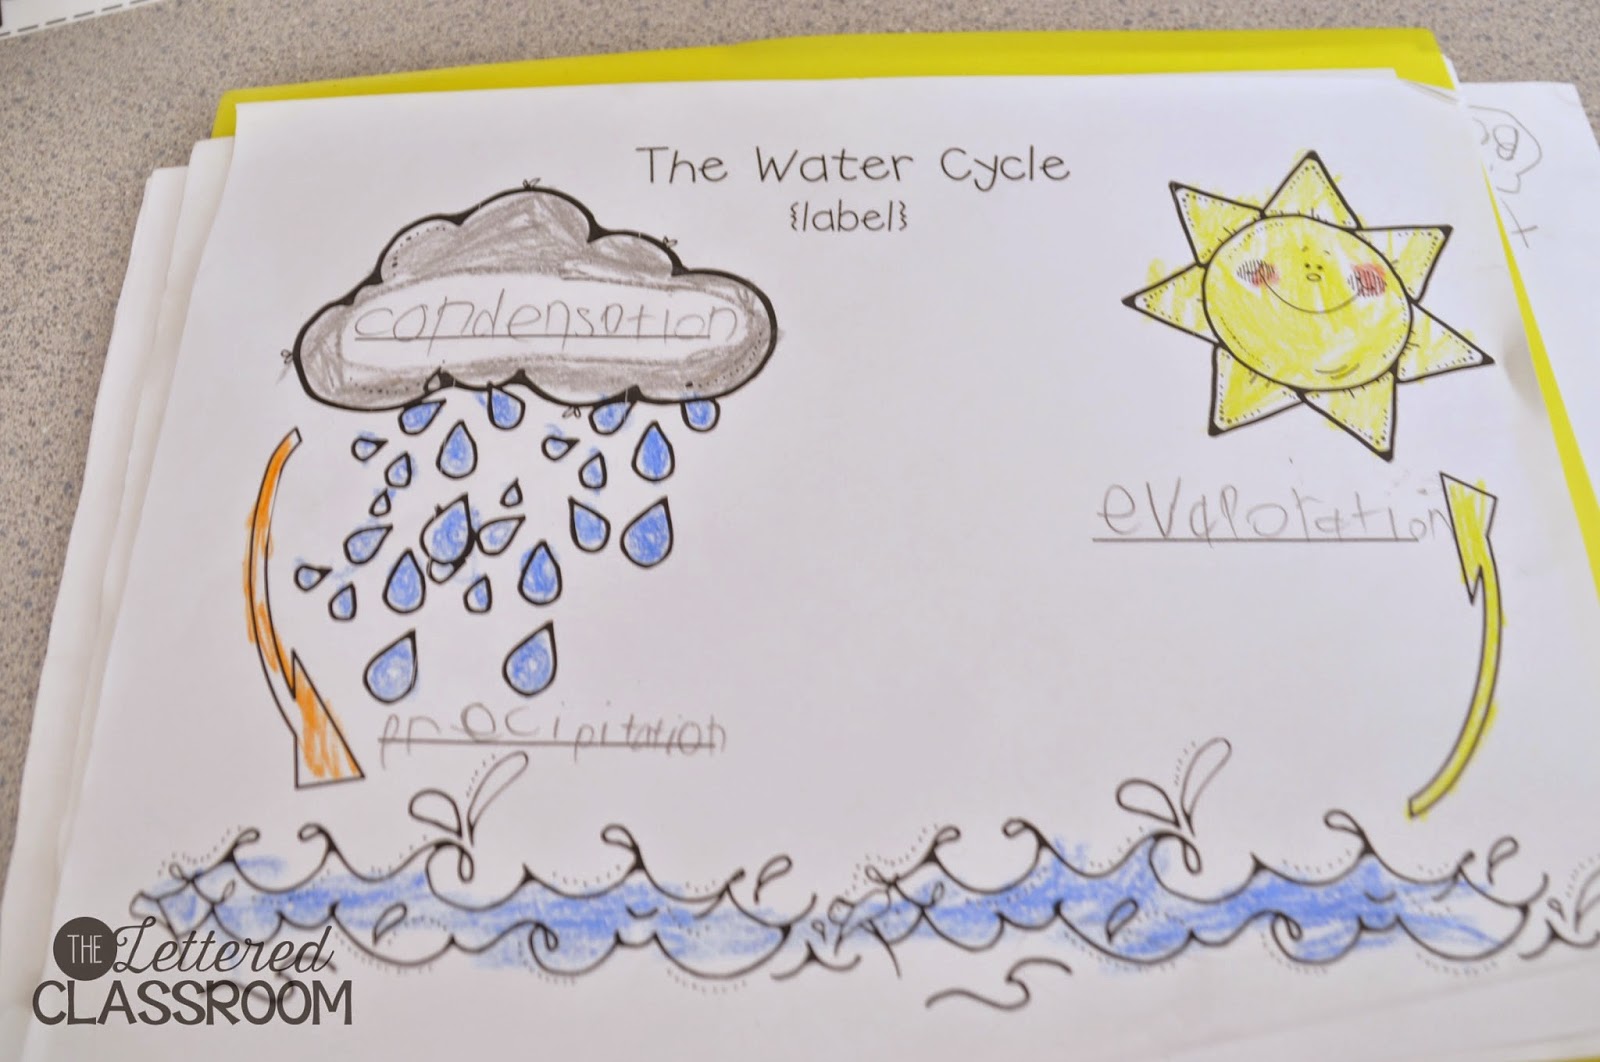 The Water Cycle
{label}
condensation
evaporation
precipitation
THE Lettered
CLASSROOM